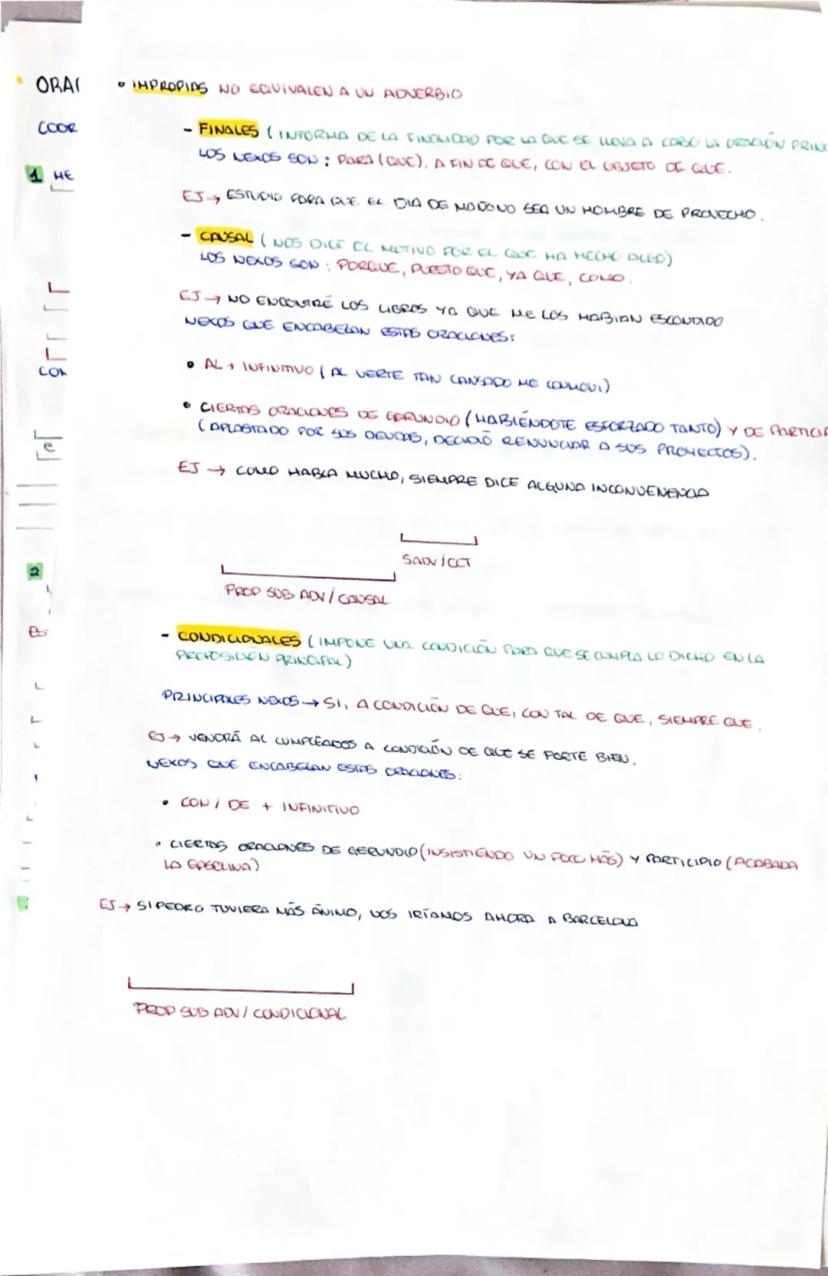 ORA
COOR
1 ME
CON
e
2
• IMPROPIAS NO EQUIVALEN A UN ADVERBIO
- FINALES (INFORMA DE LA FINALIDAD POR LA QUE SE LLEVA A CABO LA ORACIÓN PRIN
LOS NEXOS SON: PARA (QUE), A FIN DE QUE, CON EL OBJETO DE QUE.
EJ → ESTUDIO PARA QUE EL DIA DE MAÑANA SEA UN HOMBRE DE PROVECHO.
- CAUSAL (NOS DICE EL MOTIVO POR EL QUE HA HECHO ALGO)
LOS NEXOS SON: PORQUE, PUESTO QUE, YA QUE, COMO.
EJ → NO ENCONTRÉ LOS LIBROS YA QUE ME LOS HABIAN ESCONDIDO
NEXOS QUE ENCABEZAN ESTAS ORACIONES:
• AL + INFINITIVO (AL VERTE TAN CANSADO ME CONMOVI)
• CIERTAS ORACIONES DE GERUNDIO (HABIÉNDOTE ESFORZADO TANTO) Y DE PARTICIP
(APLASTADO POR SUS DEUDAS, DECIDIÓ RENUNCIAR A SUS PROYECTOS).
EJ → COMO HABLA MUCHO, SIEMPRE DICE ALGUNA INCONVENENCIA
SADV/CCT
PROP SUB ADV/CAUSAL
- CONDICIONALES (IMPONE UNA CONDICIÓN PARA QUE SE CUMPLA LO DICHO EN LA
PROPOSICIÓN PRINCIPAL)
PRINCIPALES NEXOS → SI, A CONDICIÓN DE QUE, CON TAL DE QUE, SIEMPRE QUE.
EJ → VENDRÁ AL CUMPLEAÑOS A CONDICIÓN DE QUE SE PORTE BIEN.
NEXOS QUE ENCABEZAN ESTAS ORACIONES:
• CON / DE + INFINITIVO
• CIERTAS ORACIONES DE GERUNDIO (INSISTIENDO UN POCO MÁS) Y PARTICIPIO (ACABADA
LA GASOLINA)
EJ → SI PEDRO TUVIERA MÁS ÁNIMO, NOS IRÍAMOS AHORA A BARCELONA
PROP SUB ADV/CONDICIONAL